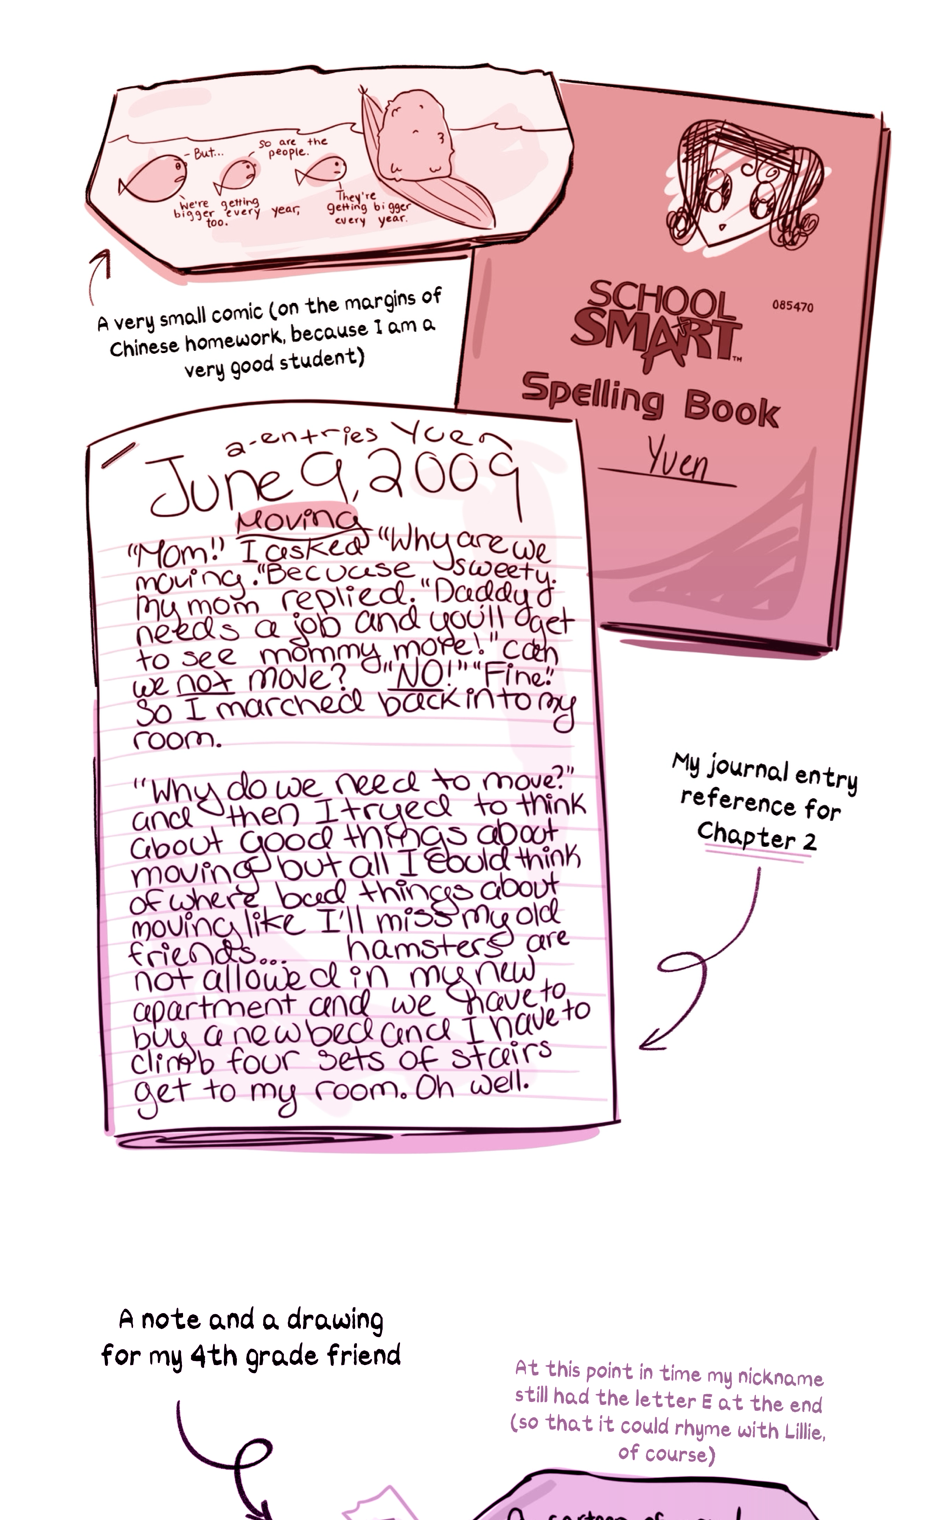 -But...
so are the
people.
We're getting
bigger every year,
too.
They're
getting bigger
every year.
A very small comic (on the margins of
Chinese homework, because I am a
very good student)
SCHOOL
SMART™
085470
Spelling Book
Yuen
2-entries Yuen
June 9, 2009
Moving
"Mom!" I asked "Why are we
moving." Becuase sweety.
My mom replied. "Daddy
needs a job and you'll get
to see mommy more!" can
we not move? "NO!" "Fine."
So I marched back into my
room.
"Why do we need to move?"
and then I tryed to think
about good things about
moving but all I could think
of where bad things about
moving like I'll miss my old
friends... hamsters are
not allowed in my new
apartment and we have to
buy a new bed and I have to
climb four sets of stairs
get to my room. Oh well.
My journal entry
reference for
Chapter 2
A note and a drawing
for my 4th grade friend
At this point in time my nickname
still had the letter E at the end
(so that it could rhyme with Lillie,
of course)